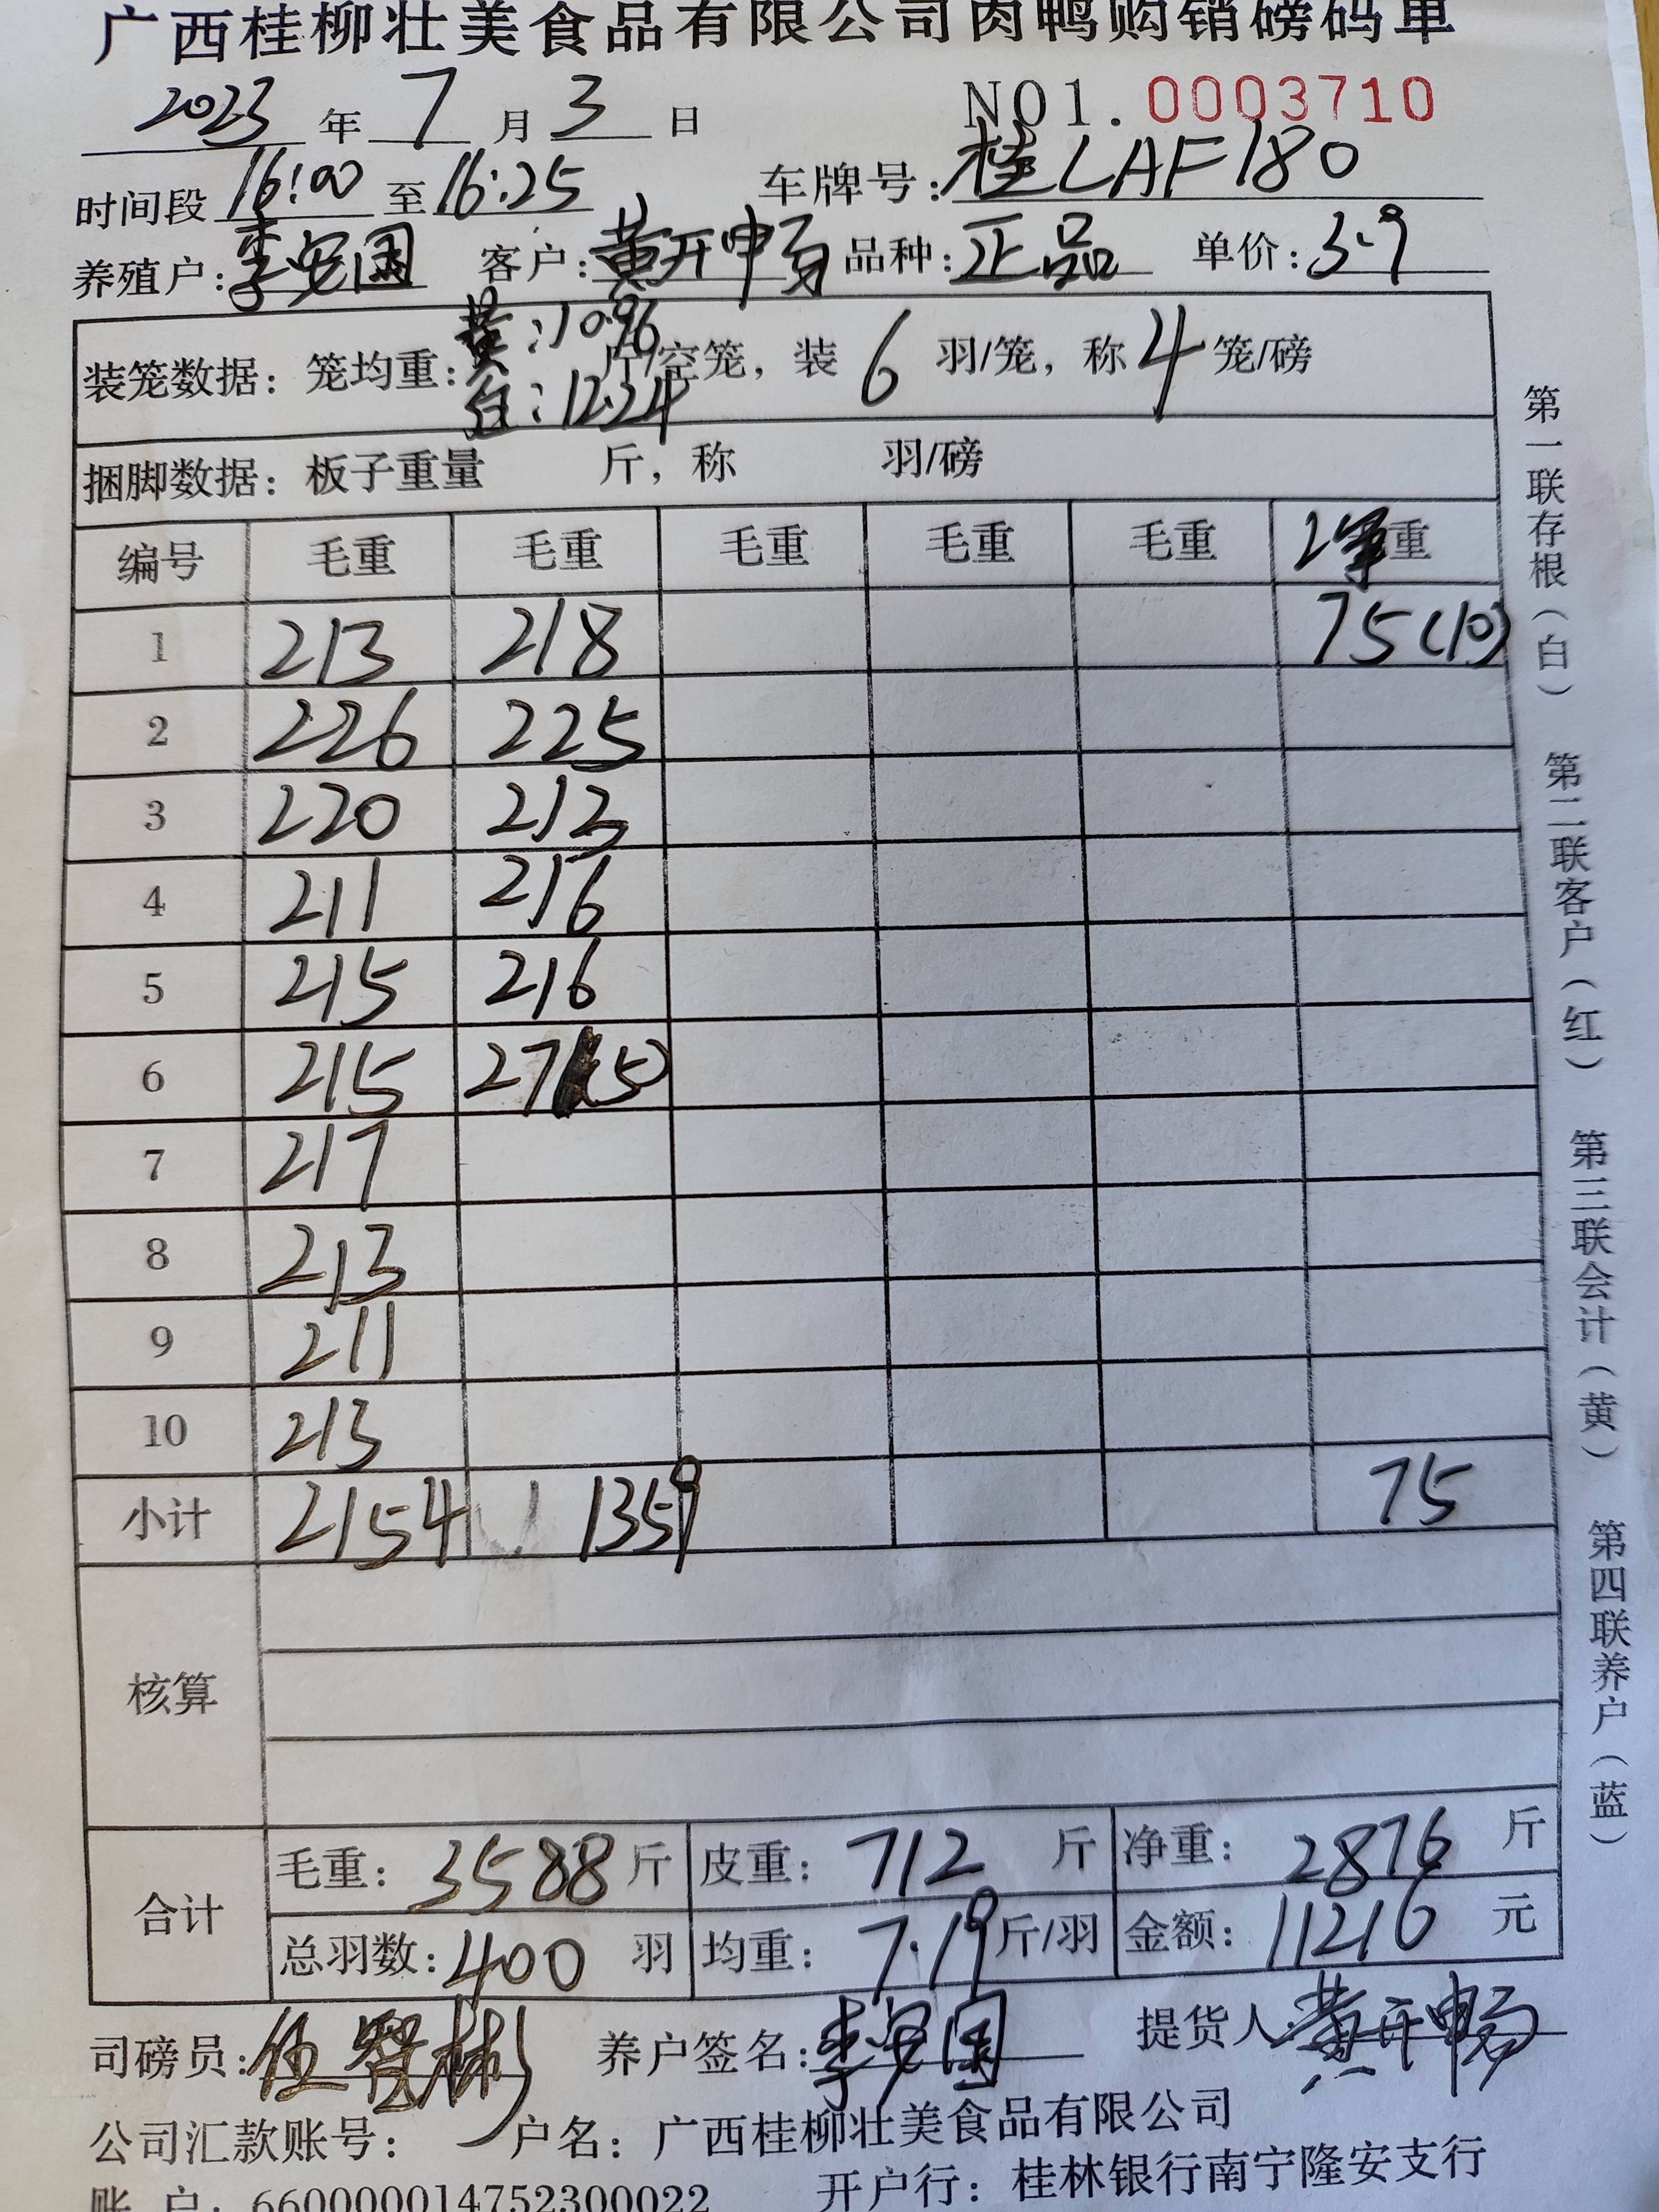 广西桂柳壮美食品有限公司肉鸭购销磅码单
2023年7月3日 NO1.0003710
时间段16:00至16:25 车牌号:桂LAF180
养殖户:李安国 客户:黄开畅 品种:正品 单价:3.9
黄:10.96
装笼数据:笼均重: 斤/空笼,装6羽/笼,称4笼/磅
红:12.24
捆脚数据:板子重量 斤,称 羽/磅
编号 毛重 毛重 毛重 毛重 毛重 重
1 213 218 75(10)
2 226 225
3 220 213
4 211 216
5 215 216
6 215 271(5)
7 217
8 213
9 211
10 213
小计 2154 1359 75
核算
合计 毛重:3588斤 皮重:712斤 净重:2876斤
总羽数:400羽 均重:7.19斤/羽 金额:11216元
司磅员:伍智彬 养户签名:李安国 提货人:黄开畅
公司汇款账号: 户名:广西桂柳壮美食品有限公司
账 户:660000014752300022 开户行:桂林银行南宁隆安支行
第一联存根(白) 第二联客户(红) 第三联会计(黄) 第四联养户(蓝)